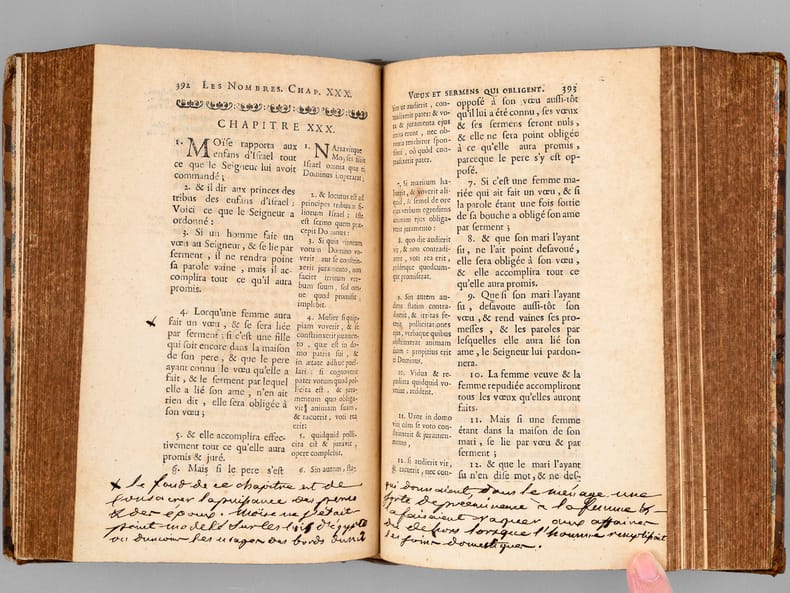 392 LES NOMBRES. CHAP. XXX.
CHAPITRE XXX.
1. MOïse rapporta aux
enfans d'Israel tout
ce que le Seigneur lui avoit
commandé ;
2. & il dit aux princes des
tribus des enfans d'Israel :
Voici ce que le Seigneur a
ordonné :
3. Si un homme fait un
vœu au Seigneur, & se lie par
serment , il ne rendra point
sa parole vaine , mais il ac-
complira tout ce qu'il aura
promis.
4. Lorsqu'une femme aura
fait un vœu , & se sera liée
par serment ; si c'est une fille
qui soit encore dans la maison
de son pere , & que le pere
ayant connu le vœu qu'elle a
fait , & le serment par lequel
elle a lié son ame , n'en ait
rien dit , elle sera obligée à
son vœu ;
5. & elle accomplira effec-
tivement tout ce qu'elle aura
promis & juré.
6. Mais si le pere s'est
1. NArravitque
Moyses filiis
Israel omnia quæ ei
Dominus imperarat;
2. & locutus est ad
principes tribuum fi-
liorum Israel : Iste
est sermo quem præ-
cepit Dominus :
3. Si quis virorum
votum Domino vo-
verit aut se constrin-
xerit juramento, non
faciet irritum ver-
bum suum, sed om-
ne quod promisit,
implebit.
4. Mulier si quip-
piam voverit, & se
constrinxerit juramen-
to , quæ est in do-
mo patris sui , & in
ætate adhuc puel-
lari : si cognoverit
pater votum quod pol-
licita est , & jura-
mentum quo obliga-
vit animam suam,
& tacuerit, voti rea
erit:
5. quidquid polli-
cita est & juravit,
opere complebit.
6. Sin autem, sta-
+ le fond de ce chapitre est de
consacrer la puissance des peres
& des epoux. Moise ne s'etait
point modelé sur les lois d'egypte
ou les usages des bords du nil
VŒUX ET SERMENS QUI OBLIGENT. 393
tim ut audierit, con-
tradixerit pater: & vo-
ta & juramenta ejus
irrita erunt, nec ob-
noxia tenebitur spon-
sioni, eò quòd con-
tradixerit pater.
7. Si maritum ha-
buerit, & voverit ali-
quid, & semel de ore
ejus verbum egrediens
animam ejus obliga-
verit juramento:
8. quo die audierit
vir, & non contradi-
xerit, voti rea erit,
reddetque quodcum-
que promiserat.
9. Sin autem au-
diens statim contra-
dixerit, & irritas fe-
cerit pollicitationes
ejus, verbaque quibus
obstrinxerat animam
suam : propitius erit
ei Dominus.
10. Vidua & re-
pudiata quidquid vo-
verint , reddent.
11. Uxor in domo
viri cùm se voto con-
strinxerit & juramen-
to,
12. si audierit vir,
& tacuerit, nec con-
opposé à son vœu aussi-tôt
qu'il lui a été connu, ses vœux
& ses sermens seront nuls,
& elle ne sera point obligée
à ce qu'elle aura promis,
parceque le pere s'y est op-
posé.
7. Si c'est une femme ma-
riée qui ait fait un vœu , & si
la parole étant une fois sortie
de sa bouche a obligé son ame
par serment ;
8. & que son mari l'ayant
su, ne l'ait point desavoué,
elle sera obligée à son vœu ,
& elle accomplira tout ce
qu'elle aura promis.
9. Que si son mari l'ayant
su , desavoue aussi-tôt son
vœu , & rend vaines ses pro-
messes , & les paroles par
lesquelles elle aura lié son
ame , le Seigneur lui pardon-
nera.
10. La femme veuve & la
femme repudiée accompliront
tous les vœux qu'elles auront
faits.
11. Mais si une femme
étant dans la maison de son
mari , se lie par vœu & par
serment ;
12. & que le mari l'ayant
su n'en dise mot, & ne des-
qui donnaient, dans le menage une
sorte de préeminence à la femme &
la faisaient vaquer aux affaires
du dehors lorsque l'homme remplissait
les soins domestiques.